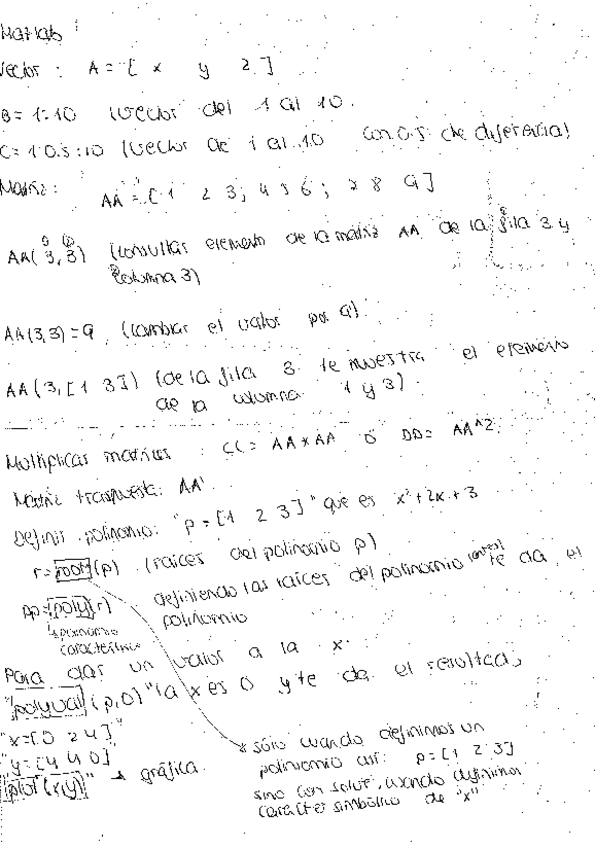 Matlab:
Vector: A = [ x y z ]
B = 1:10 (vector del 1 al 10.
C = 1:0.5:10 (vector de 1 al 10 con 0.5 de diferencia)
Matriz: AA = [ 1 2 3; 4 5 6; 7 8 9 ]
AA(3,3) (consultar elemento de la matriz AA de la fila 3 y
columna 3)
AA(3,3) = 9 (cambiar el valor por 9).
AA(3,[1 3]) (de la fila 3 te muestra el elemento
de la columna 1 y 3).
Multiplicar matrices : CC = AA * AA ó DD = AA^2.
Matriz traspuesta: AA'
Definir polinomio: "p = [1 2 3]" que es x² + 2x + 3
r = roots(p) (raíces del polinomio p)
Ap = poly(r) definiendo las raíces del polinomio (antes) te da el
polinomio
↳ polinomio
característico
Para dar un valor a la x.
"polyval(p,0)" (a x es 0 y te da el resultado)
"x=[0 2 4]"
"y=[4 4 0]"
"plot(x,y)" → gráfica.
* sólo cuando definimos un
polinomio así: p = [1 2 3]
sino con solve, cuando definimos
carácter simbólico de "x"